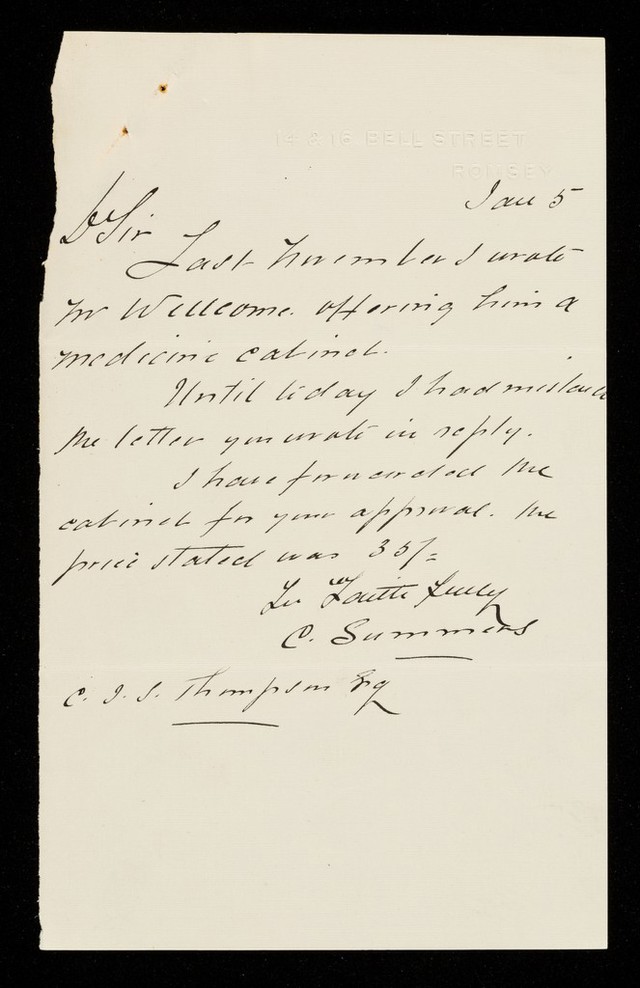 14 & 16 BELL STREET
ROMSEY
Jan 5
Dr Sir
Last November I wrote
Mr Wellcome. offering him a
medicine cabinet.
Until to day I had mislaid
the letter you wrote in reply.
I have forwarded the
cabinet for your approval. The
price stated was 35/=
Yrs Faithfully
C. Summers
C. J. S. Thompson Esq